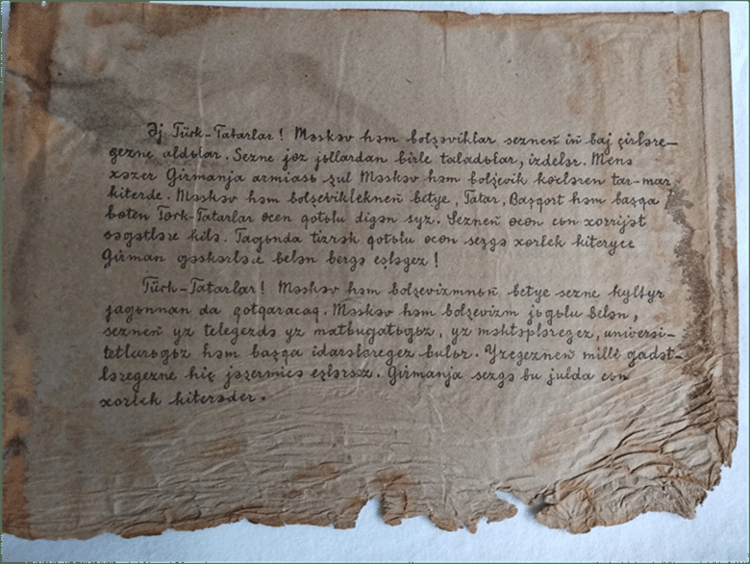 Əj Türk-Tatarlar! Məskəv həm bolşeviklar sezneñ iñ baj çirləre-
gezne aldьlar. Sezne jөz jьllardan birle taladьlar, izdelər. Menə
xəzer Girmanja armiasь şul Məskəv həm bolşevik kөcləren tar-mar
kiterde. Məskəv həm bolşevikləkneñ betye, Tatar, Başqort həm başqa
bөten Tөrk-Tatarlar өcen qotьlu digən syz. Sezneñ өcөn cьn xorrijət
səgətləre kilə. Tagьnda tizrək qotьlu өcөn sezgə xөrlek kiteryce
Girman gəskərləre belən bergə eşləgez!
Türk-Tatarlar! Məskəv həm bolşevizmnьñ betye sezne kyltyr
jagьnnan da qotqaracaq. Məskəv həm bolşevizm jogolu belən,
sezneñ yz telegezdə yz matbugatьgьz, yz məktəpləregez, universi-
tetlarьgьz həm başqa idarələregez bulьr. Yzegezneñ milli gadət-
ləregezne hiç jəşermicə eşlərsez. Girmanja sezgə bu julda cьn
xөrlek kiterəder.